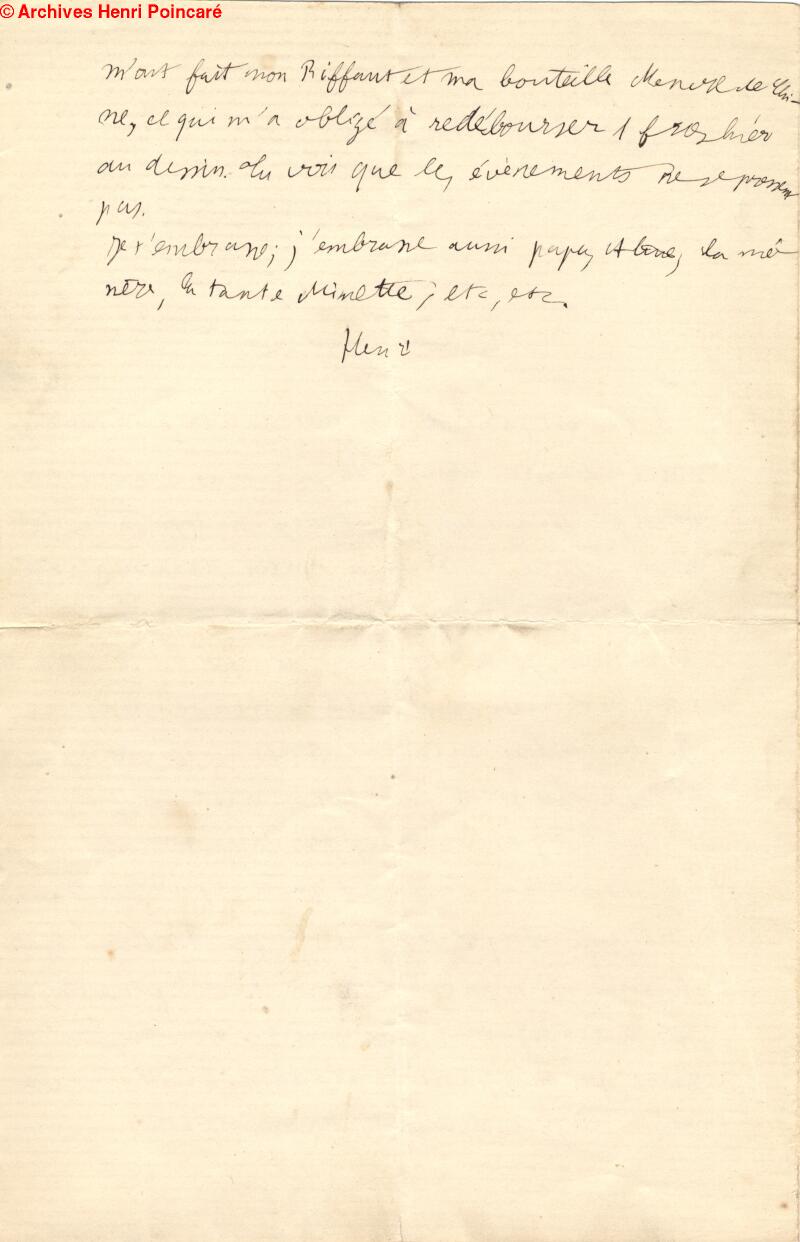 © Archives Henri Poincaré
m'ont fait mon Riffaut et ma bouteille d'encre de Chi-
ne, ce qui m'a obligé à redébourser 1 frcs hier
au dessin. Tu vois que les évènements ne se pressent
pas.
Je t'embrasse; j'embrasse aussi papa, Aline, la mé
nère, la tante Minette; etc, etc.
Henri